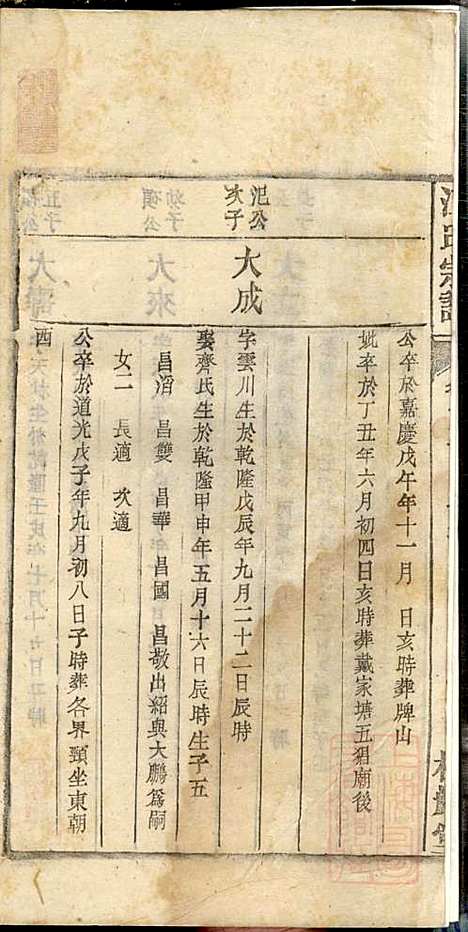 公卒於嘉慶戊午年十一月　日亥時葬牌山
妣卒於丁丑年六月初四日亥時葬戴家塘五猖廟後
汜公
次子
大成
字雲川生於乾隆戊辰年九月二十二日辰時
娶齊氏生於乾隆甲申年五月十六日辰時生子五
昌滔　昌雙　昌華　昌國　昌敬出紹與大鵬爲嗣
女二　長適　次適
公卒於道光戊子年九月初八日子時葬各界頸坐東朝
西